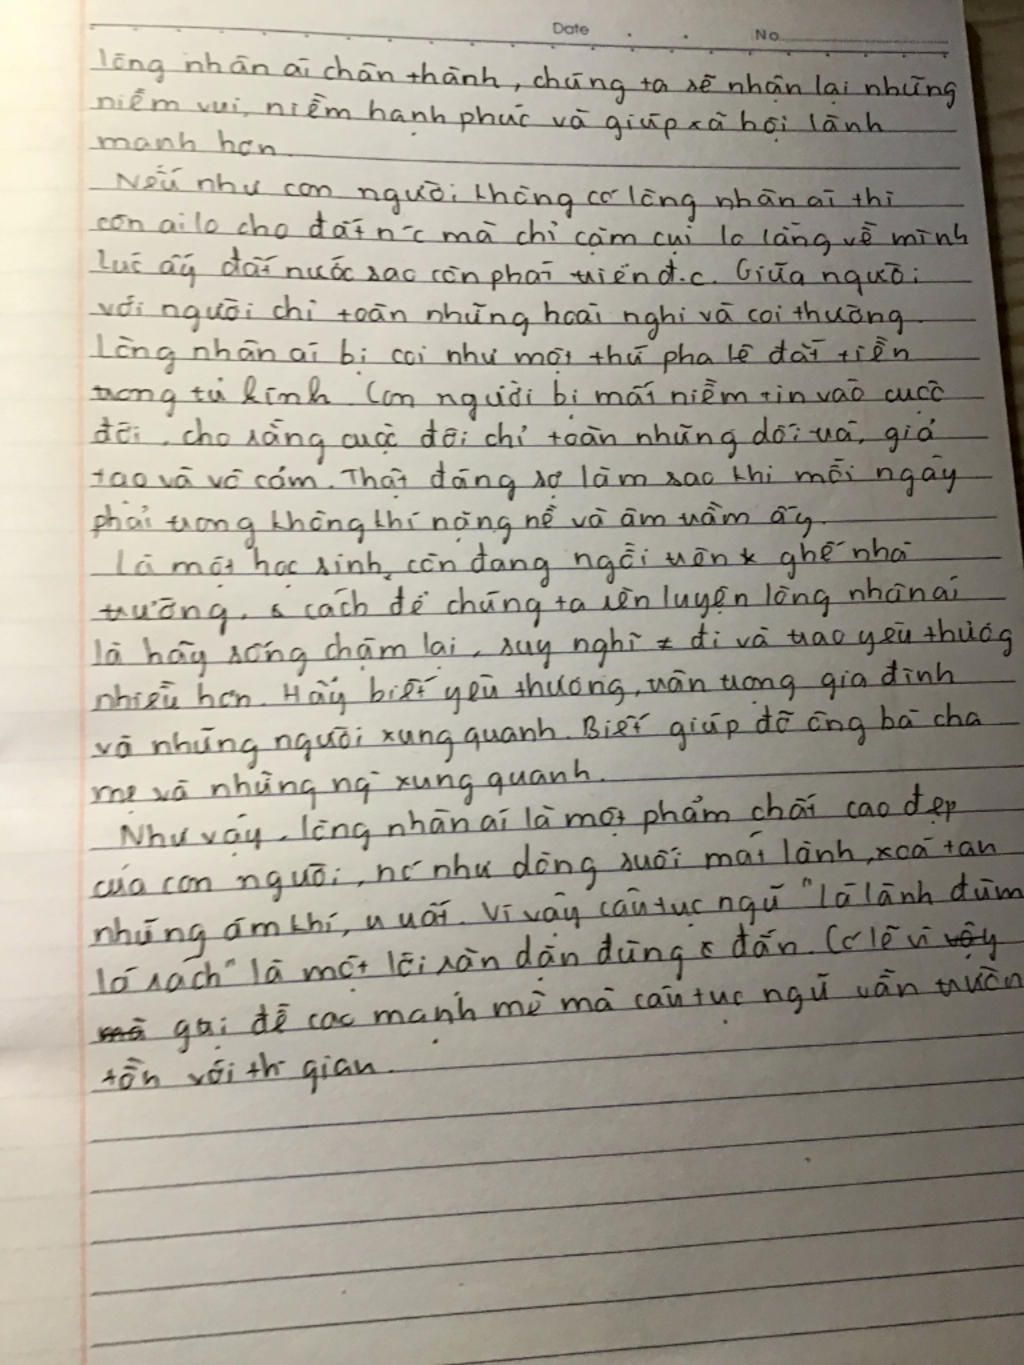 Date No
lòng nhân ái chân thành, chúng ta sẽ nhận lại những
niềm vui, niềm hạnh phúc và giúp xã hội lành
mạnh hơn.
Nếu như con người không có lòng nhân ái thì
còn ai lo cho đất n'c mà chỉ cặm cụi lo lắng về mình
lúc ấy đất nước sao còn phát triển đ.c. Giữa người
với người chỉ toàn những hoài nghi và coi thường.
Lòng nhân ái bị coi như một thứ pha lê đắt tiền
trong tủ kính. Con người bị mất niềm tin vào cuộc
đời, cho rằng cuộc đời chỉ toàn những dối trá, giả
tạo và vô cảm. Thật đáng sợ làm sao khi mỗi ngày
phải trong không khí nặng nề và âm trầm ấy.
Là một học sinh, còn đang ngồi trên ghế nhà
trường, cách để chúng ta rèn luyện lòng nhân ái
là hãy sống chậm lại, suy nghĩ đi và trao yêu thương
nhiều hơn. Hãy biết yêu thương, trân trọng gia đình
và những người xung quanh. Biết giúp đỡ ông bà cha
mẹ và những ng` xung quanh.
Như vậy, lòng nhân ái là một phẩm chất cao đẹp
của con người, nó như dòng suối mát lành, xoá tan
những ám khí, u uất. Vì vậy câu tục ngữ "lá lành đùm
lá rách" là một lời răn dặn đúng đắn. Có lẽ vì vậy
mà giá trị để cao mạnh mẽ mà câu tục ngữ vẫn trường
tồn với th` gian.